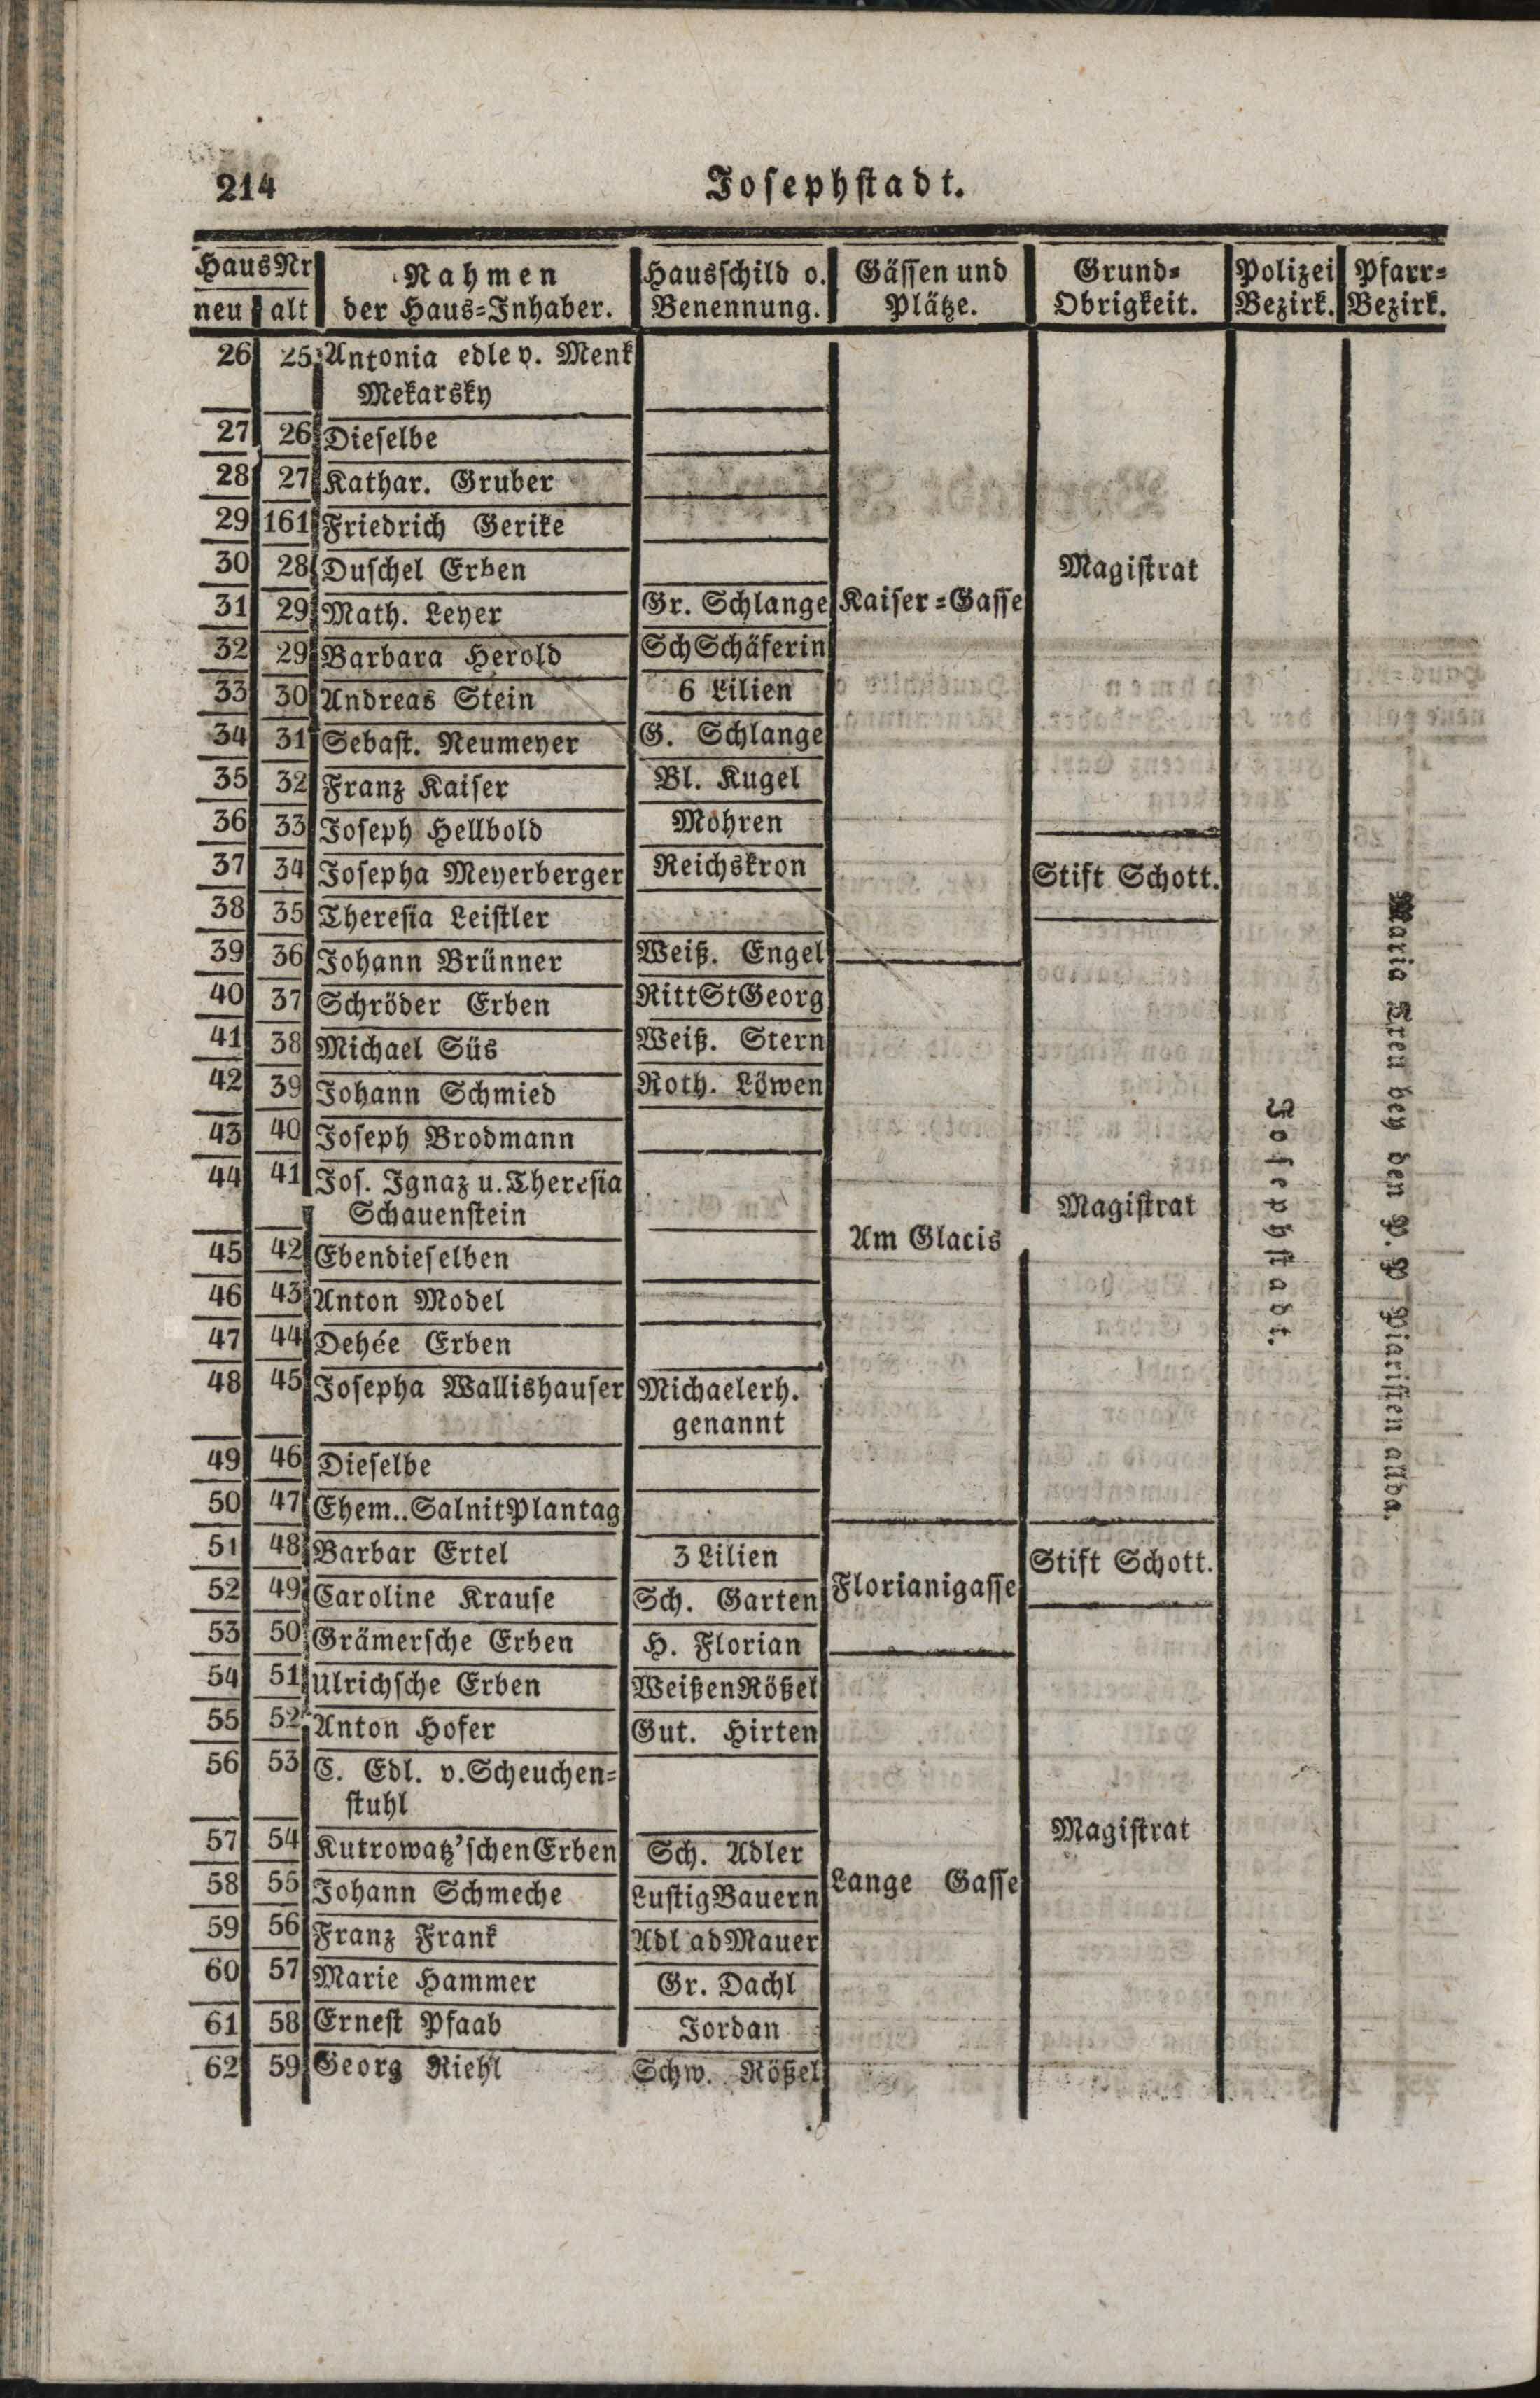 214
Josephstadt.
HausNr
neu alt
Nahmen
der Haus=Inhaber.
Hausschild o.
Benennung.
Gässen und
Plätze.
Grund=
Obrigkeit.
Polizei
Bezirk.
Pfarr=
Bezirk.
26 25 Antonia edle v. Menk
Mekarsky
27 26 Dieselbe
28 27 Kathar. Gruber
29 161 Friedrich Gerike
30 28 Duschel Erben
Magistrat
31 29 Math. Leyer Gr. Schlange Kaiser=Gasse
32 29 Barbara Herold SchSchäferin
33 30 Andreas Stein 6 Lilien
34 31 Sebast. Neumeyer G. Schlange
35 32 Franz Kaiser Bl. Kugel
36 33 Joseph Hellbold Mohren
37 34 Josepha Meyerberger Reichskron Stift Schott.
38 35 Theresia Leistler
39 36 Johann Brünner Weiß. Engel
40 37 Schröder Erben RittStGeorg
41 38 Michael Süs Weiß. Stern
42 39 Johann Schmied Roth. Löwen
43 40 Joseph Brodmann
44 41 Jos. Ignaz u. Theresia
Schauenstein Magistrat
Am Glacis
45 42 Ebendieselben
46 43 Anton Model
47 44 Dehée Erben
48 45 Josepha Wallishauser Michaelerh.
genannt
49 46 Dieselbe
50 47 Ehem.. SalnitPlantag
51 48 Barbar Ertel 3 Lilien Stift Schott.
52 49 Caroline Krause Sch. Garten Florianigasse
53 50 Grämersche Erben H. Florian
54 51 Ulrichsche Erben WeißenRößel
55 52 Anton Hofer Gut. Hirten
56 53 C. Edl. v. Scheuchen=
stuhl
57 54 Kutrowatz'schenErben Sch. Adler Magistrat
58 55 Johann Schmeche LustigBauern Lange Gasse
59 56 Franz Frank Adl adMauer
60 57 Marie Hammer Gr. Dachl
61 58 Ernest Pfaab Jordan
62 59 Georg Riehl Schw. Rößel
Josephstadt.
Maria Treu bey den P. P Piaristen allda.